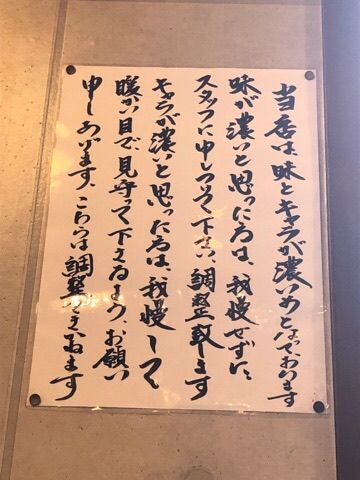 当店は味とキャラが濃いめとなております
味が濃いと思った方は、我慢せずに、
スタッフに申しつけて下さい、調整致します
キャラが濃いと思った方は、我慢して
暖かい目で見守って下さるよう、お願い
申しあげます、こちらは調整できかねます